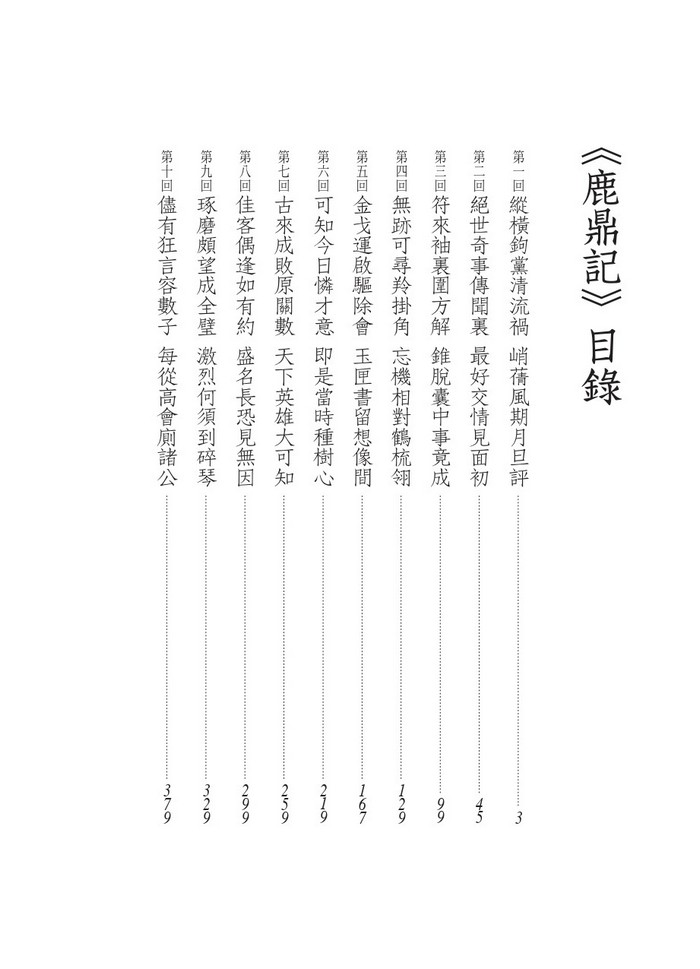 《鹿鼎記》目錄
第一回 縱橫鉤黨清流禍 峭蒨風期月旦評 3
第二回 絕世奇事傳聞裏 最好交情見面初 45
第三回 符來袖裏圍方解 錐脫囊中事竟成 99
第四回 無跡可尋羚掛角 忘機相對鶴梳翎 129
第五回 金戈運啟驅除會 玉匣書留想像間 167
第六回 可知今日憐才意 即是當時種樹心 219
第七回 古來成敗原關數 天下英雄大可知 259
第八回 佳客偶逢如有約 盛名長恐見無因 299
第九回 琢磨頗望成全璧 激烈何須到碎琴 329
第十回 儘有狂言容數子 每從高會廁諸公 379